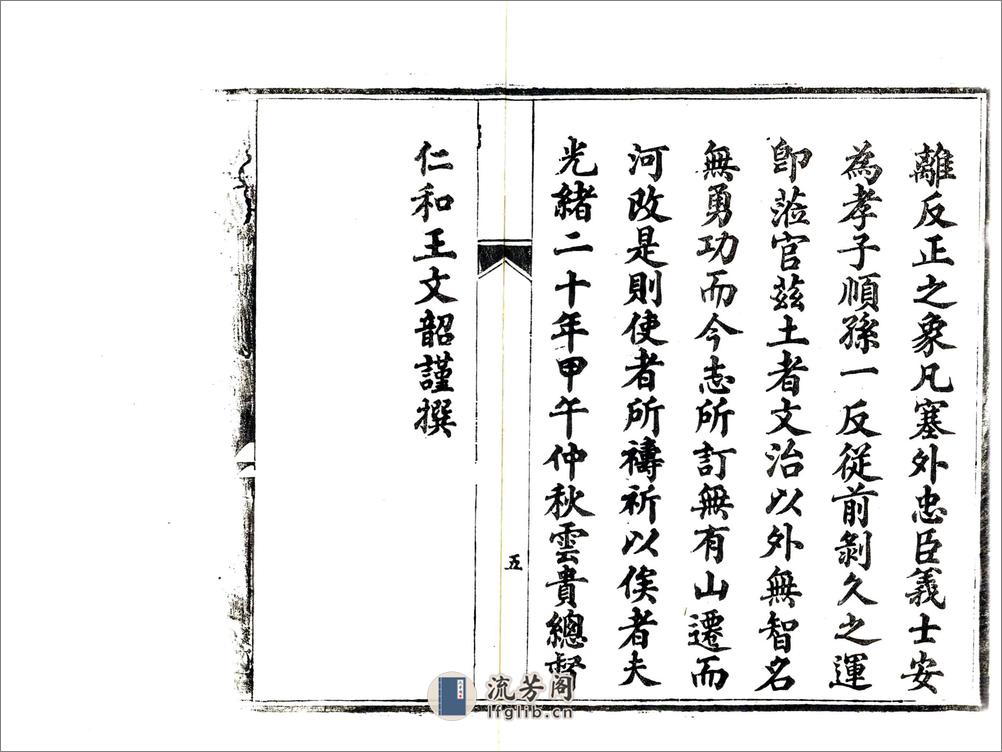 離反正之象凡塞外忠臣義士安
為孝子順孫一反從前剝久之運
即蒞官茲土者文治以外無智名
無勇功而今志所訂無有山遷而
河改是則使者所禱祈以俟者夫
光緒二十年甲午仲秋雲貴總督
五
仁和王文韶謹撰
流芳阁
lfglib.cn